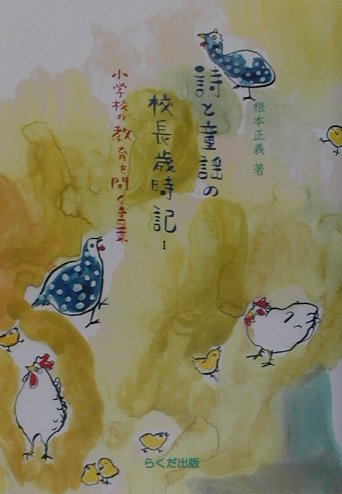 詩と童謡の
校長歳時記
I
小学校の教育を開く言葉
根本正義 著
らくだ出版